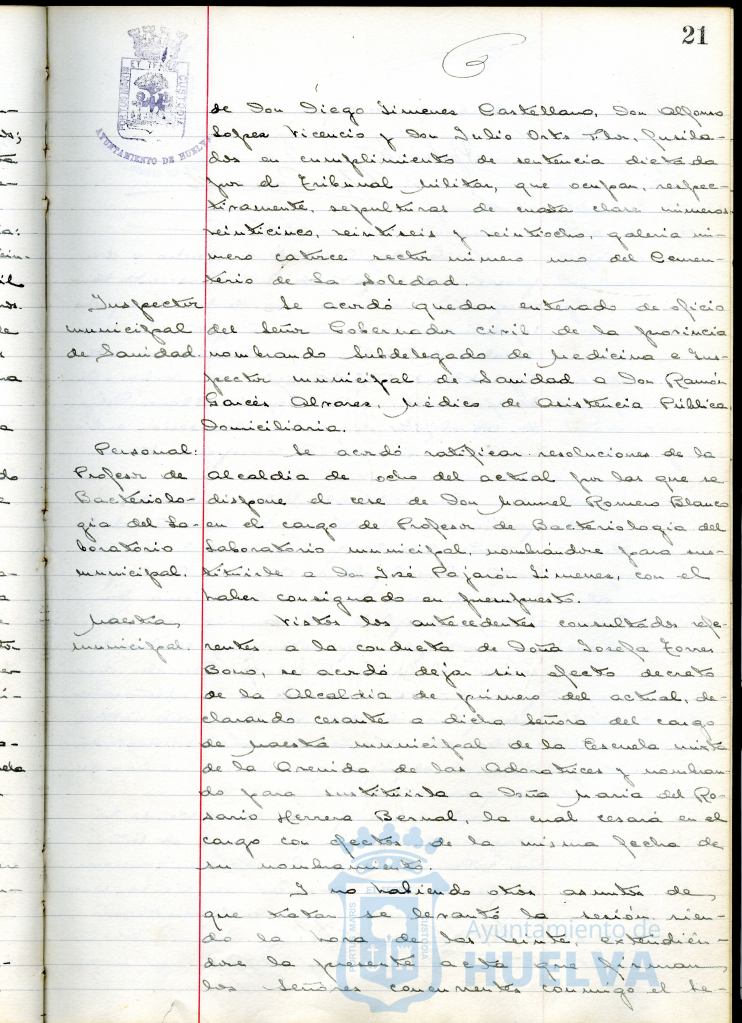 21
AYUNTAMIENTO DE HUELVA
de Don Diego Jimenez Castellano, Don Alfonso
Lopez Vicencio y Don Julio Orts Flor, fusila-
dos en cumplimiento de sentencia dictada
por el Tribunal Militar, que ocupan, respec-
tivamente, sepulturas de cuarta clase números
veinticinco, veintiseis y veintiocho, galeria nú-
mero catorce sector número uno del Cemen-
terio de la Soledad.
Inspector
municipal
de Sanidad.
Se acordó quedar enterado de oficio
del Señor Gobernador civil de la provincia
nombrando Subdelegado de Medicina e Ins-
pector municipal de Sanidad a Don Ramón
Garcés Alvarez, Médico de Asistencia Pública
Domiciliaria.
Personal:
Profesor de
Bacteriolo-
gia del La-
boratorio
municipal.
Se acordó ratificar resoluciones de la
Alcaldia de ocho del actual por las que se
dispone el cese de Don Manuel Romero Blanco
en el cargo de Profesor de Bacteriologia del
Laboratorio municipal, nombrándose para sus-
tituirle a Don José Pajarón Jimenez, con el
haber consignado en presupuesto.
Maestra
municipal.
Vistos los antecedentes consultados refe-
rentes a la conducta de Doña Josefa Torres
Bono, se acordó dejar sin efecto decreto
de la Alcaldia de primero del actual, de-
clarando cesante a dicha Señora del cargo
de Maestra municipal de la Escuela mixta
de la Avenida de las Adoratrices y nombran-
do para sustituirla a Doña Maria del Ro-
sario Herrera Bernal, la cual cesará en el
cargo con efectos de la misma fecha de
su nombramiento.
Y no habiendo otros asuntos de
que tratar se levantó la sesión, sien-
do la hora de las veinte, extendién-
dose la presente acta que firman
los Señores concurrentes conmigo el Se-
Ayuntamiento de
HUELVA